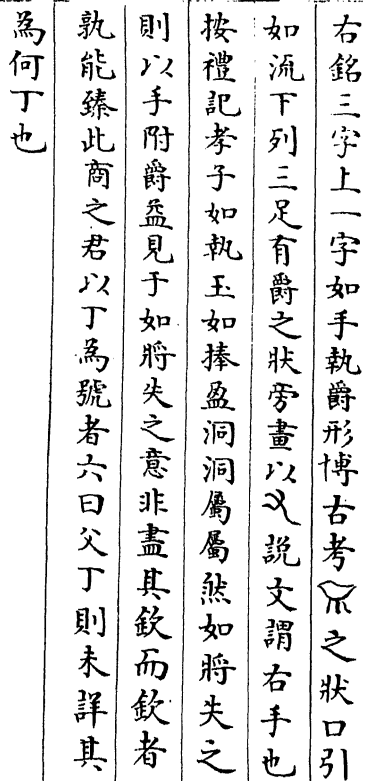 右銘三字上一字如手執爵形博古考之狀口引
如流下列三足有爵之狀旁畫以又説文謂右手也
按禮記孝子如執玉如捧盈洞洞屬屬然如將失之
則以手附爵益見于如將失之意非盡其欽而欽者
孰能臻此商之君以丁為號者六曰父丁則未詳其
為何丁也